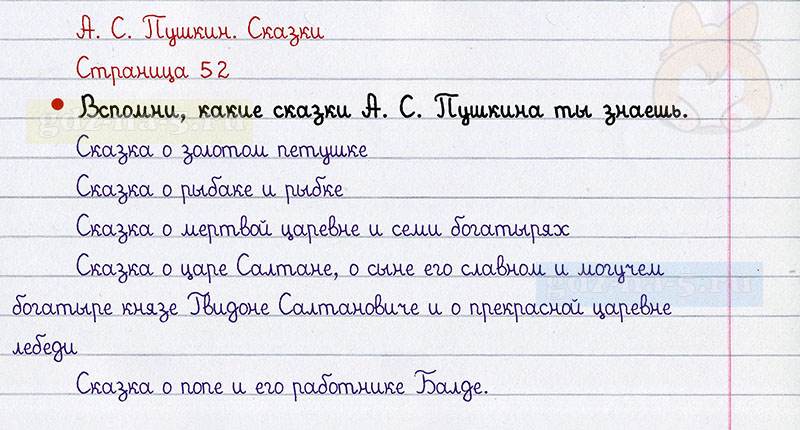 А. С. Пушкин. Сказки
Страница 52
• Вспомни, какие сказки А. С. Пушкина ты знаешь.
gdz-na-5.ru
Сказка о золотом петушке
Сказка о рыбаке и рыбке
Сказка о мертвой царевне и семи богатырях
Сказка о царе Салтане, о сыне его славном и могучем
gdz-na-5.ru
богатыре князе Гвидоне Салтановиче и о прекрасной царевне
лебеди
Сказка о попе и его работнике Балде.